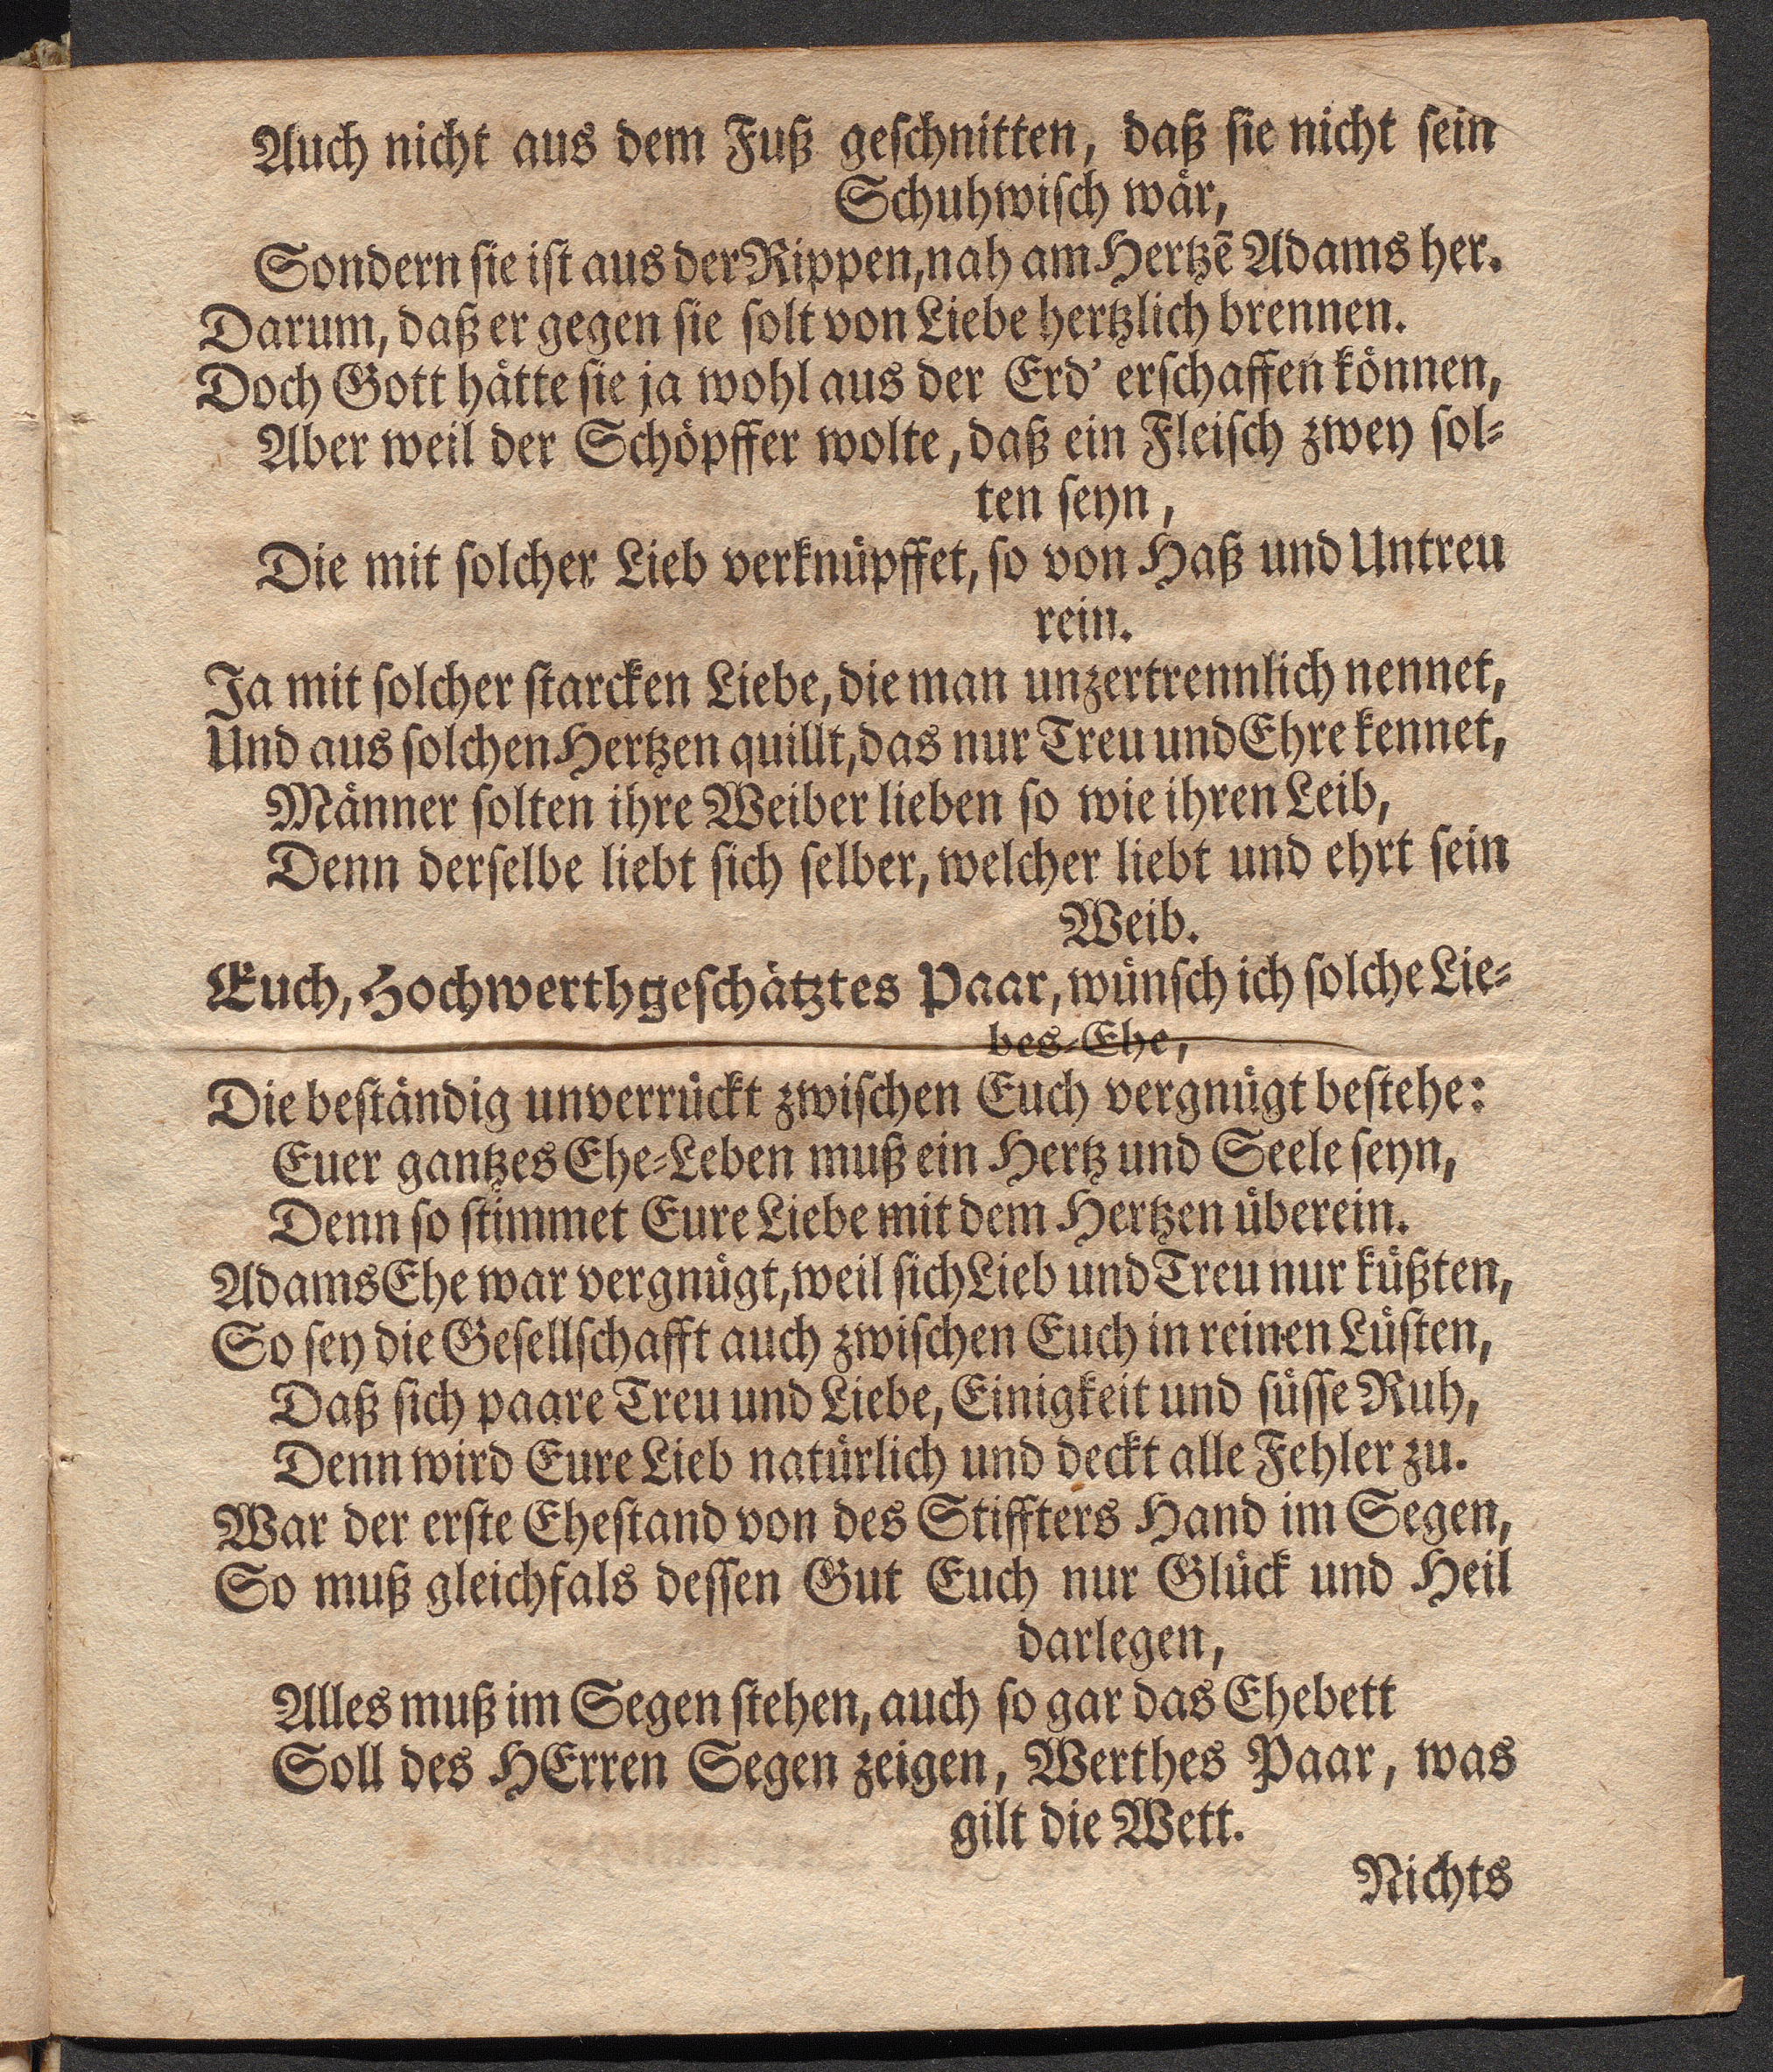 Auch nicht aus dem Fuß geſchnitten, daß ſie nicht ſein
Schuhwiſch waͤr,
Sondern ſie iſt aus der Rippen, nah am Hertzē Adams her.
Darum, daß er gegen ſie ſolt von Liebe hertzlich brennen.
Doch Gott haͤtte ſie ja wohl aus der Erd’ erſchaffen koͤnnen,
Aber weil der Schoͤpffer wolte, daß ein Fleiſch zwey ſol⸗
ten ſeyn,
Die mit ſolcher Lieb verknuͤpffet, ſo von Haß und Untreu
rein.
Ja mit ſolcher ſtarcken Liebe, die man unzertrennlich nennet,
Und aus ſolchen Hertzen quillt, das nur Treu und Ehre kennet,
Maͤnner ſolten ihre Weiber lieben ſo wie ihren Leib,
Denn derſelbe liebt ſich ſelber, welcher liebt und ehrt ſein
Weib.
Euch, Hochwerthgeſchaͤtztes Paar, wuͤnſch ich ſolche Lie⸗
bes⸗Ehe,
Die beſtaͤndig unverruͤckt zwiſchen Euch vergnuͤgt beſtehe:
Euer gantzes Ehe⸗Leben muß ein Hertz und Seele ſeyn,
Denn ſo ſtimmet Eure Liebe mit dem Hertzen uͤberein.
Adams Ehe war vergnuͤgt, weil ſich Lieb und Treu nur kuͤßten,
So ſey die Geſellſchafft auch zwiſchen Euch in reinen Luͤſten,
Daß ſich paare Treu und Liebe, Einigkeit und ſuͤſſe Ruh,
Denn wird Eure Lieb natuͤrlich und deckt alle Fehler zu.
War der erſte Eheſtand von des Stiffters Hand im Segen,
So muß gleichfals deſſen Gut Euch nur Gluͤck und Heil
darlegen,
Alles muß im Segen ſtehen, auch ſo gar das Ehebett
Soll des HErren Segen zeigen, Werthes Paar, was
gilt die Wett.
Nichts